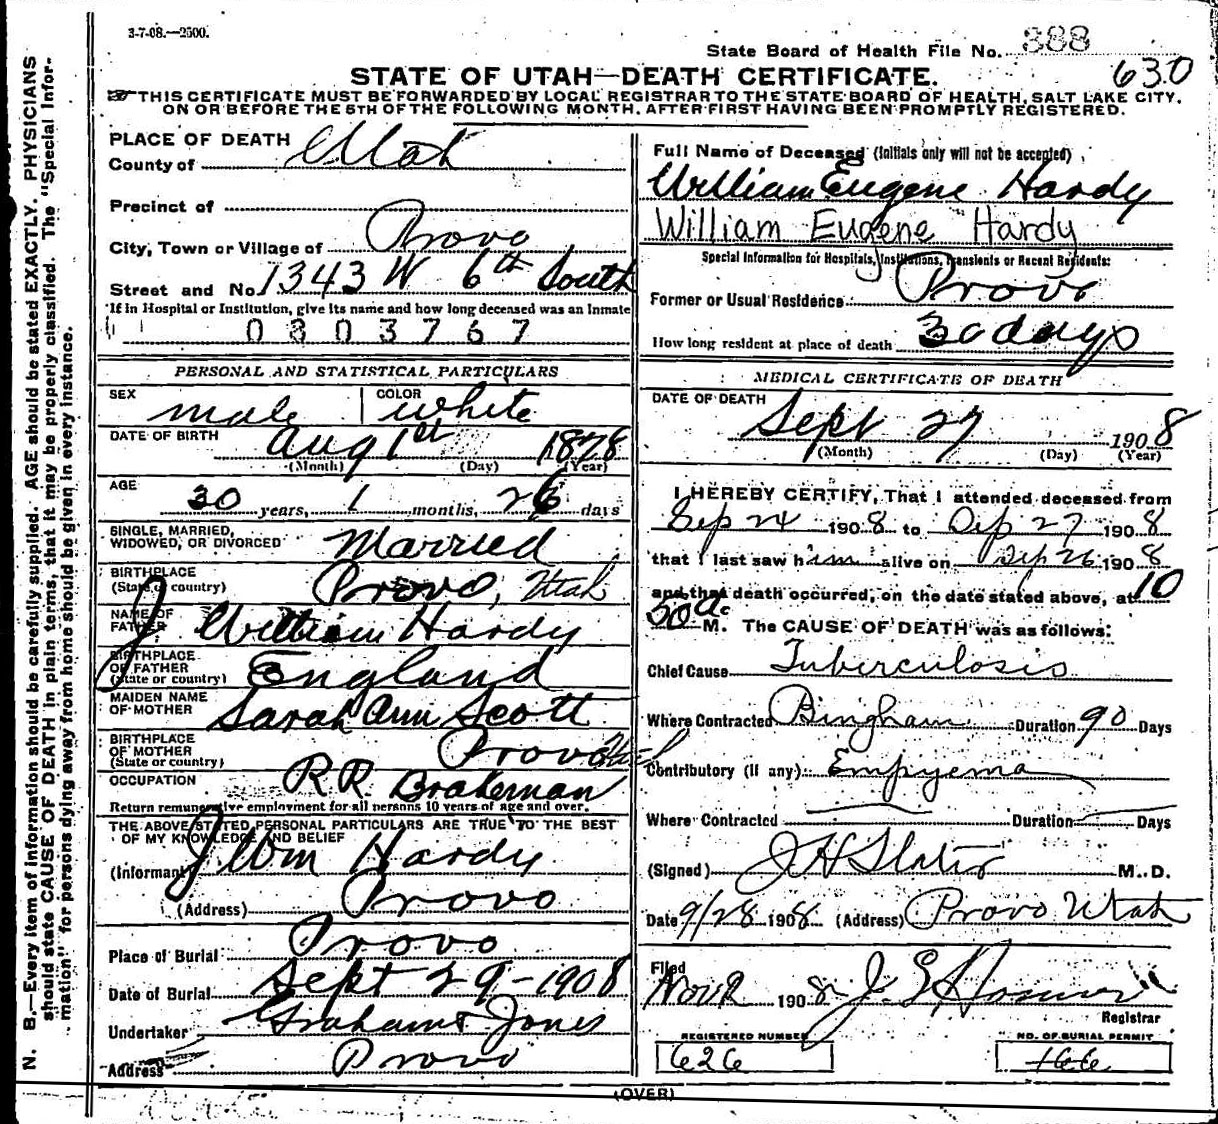 3-7-08.—2500.
State Board of Health File No. 388
630
STATE OF UTAH—DEATH CERTIFICATE.
THIS CERTIFICATE MUST BE FORWARDED BY LOCAL REGISTRAR TO THE STATE BOARD OF HEALTH, SALT LAKE CITY,
ON OR BEFORE THE 5TH OF THE FOLLOWING MONTH, AFTER FIRST HAVING BEEN PROMPTLY REGISTERED.
N. B.—Every item of information should be carefully supplied. AGE should be stated EXACTLY. PHYSICIANS
should state CAUSE OF DEATH in plain terms, that it may be properly classified. The "Special Infor-
mation" for persons dying away from home should be given in every instance.
PLACE OF DEATH
County of Utah
Precinct of
City, Town or Village of Provo
Street and No. 1343 W 6th South
If in Hospital or Institution, give its name and how long deceased was an Inmate
0803767
PERSONAL AND STATISTICAL PARTICULARS
SEX male COLOR white
DATE OF BIRTH Aug 1st 1878
(Month) (Day) (Year)
AGE 30 years, 1 months, 26 days
SINGLE, MARRIED,
WIDOWED, OR DIVORCED Married
BIRTHPLACE
(State or country) Provo, Utah
NAME OF
FATHER J William Hardy
BIRTHPLACE
OF FATHER
(State or country) England
MAIDEN NAME
OF MOTHER Sarah Ann Scott
BIRTHPLACE
OF MOTHER
(State or country) Provo Utah
OCCUPATION R.R. Brakeman
Return remunerative employment for all persons 10 years of age and over.
THE ABOVE STATED PERSONAL PARTICULARS ARE TRUE TO THE BEST
OF MY KNOWLEDGE AND BELIEF
(Informant) J Wm Hardy
(Address) Provo
Place of Burial Provo
Date of Burial Sept 29-1908
Undertaker Graham & Jones
Address Provo
Full Name of Deceased (Initials only will not be accepted)
William Eugene Hardy
William Eugene Hardy
Special Information for Hospitals, Institutions, Transients or Recent Residents:
Former or Usual Residence Provo
How long resident at place of death 30 days
MEDICAL CERTIFICATE OF DEATH
DATE OF DEATH
Sept 27 1908
(Month) (Day) (Year)
I HEREBY CERTIFY, That I attended deceased from
Sep 24 1908 to Sep 27 1908
that I last saw him alive on Sep 26 1908
and that death occurred, on the date stated above, at 10
50 a. M. The CAUSE OF DEATH was as follows:
Chief Cause Tuberculosis
Where Contracted Bingham Duration 90 Days
Contributory (if any) Empyema
Where Contracted Duration Days
(Signed) M. D.
Date 9/28 1908 (Address) Provo Utah
Filed Nov 2 1908
Registrar
REGISTERED NUMBER
626
NO. OF BURIAL PERMIT
166
(OVER)